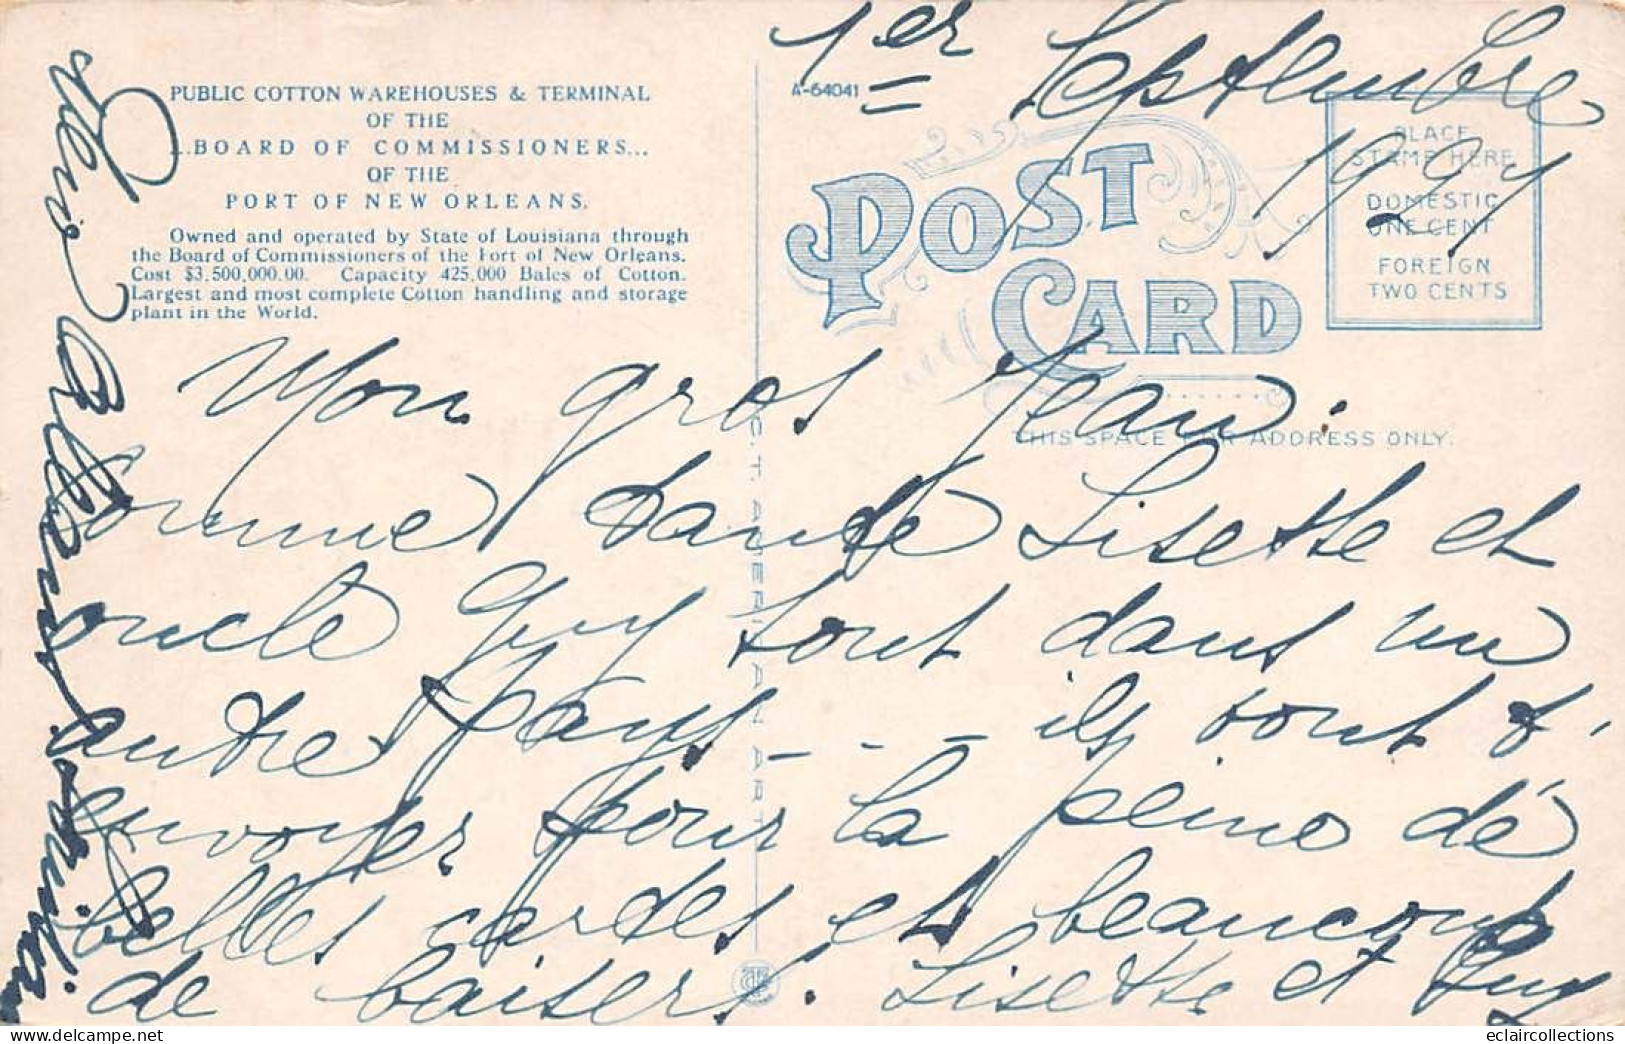 1er Septembre
1927
PUBLIC COTTON WAREHOUSES & TERMINAL
OF THE
...BOARD OF COMMISSIONERS...
OF THE
PORT OF NEW ORLEANS.
Owned and operated by State of Louisiana through
the Board of Commissioners of the Port of New Orleans.
Cost $3,500,000.00. Capacity 425,000 Bales of Cotton.
Largest and most complete Cotton handling and storage
plant in the World.
A-64041
POST
CARD
PLACE
STAMP HERE
DOMESTIC
ONE CENT
FOREIGN
TWO CENTS
THIS SPACE FOR ADDRESS ONLY.
C. T. AMERICAN ART
Mon gros Jean.
Comme tante Lisette et
oncle Guy sont dans un
autre pays - - - ils vont t'
envoyer pour la peine de
belles cartes et beaucoup
de baisers. Lisette et Guy
Orléans
eclaircollections